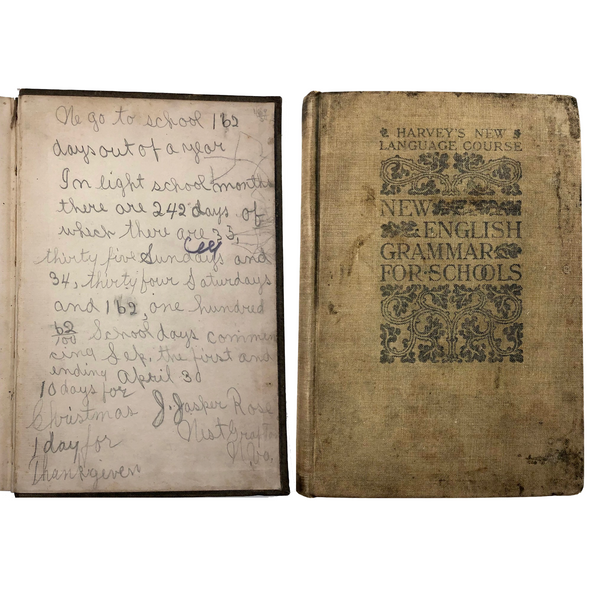 We go to school 162
days out of a year
In eight school months
there are 242 days of
which there are 35,
thirty five Sundays and
34, thirty four Saturdays
and 162, one hundred
62/100 School days commen
cing Sep. the first and
ending April 30
10 days for
Christmas
1 day for
Thanksgiven
J. Jasper Rose
West Grafton
W. Va.
HARVEY'S NEW
LANGUAGE COURSE
NEW
ENGLISH
GRAMMAR
FOR·SCHOOLS